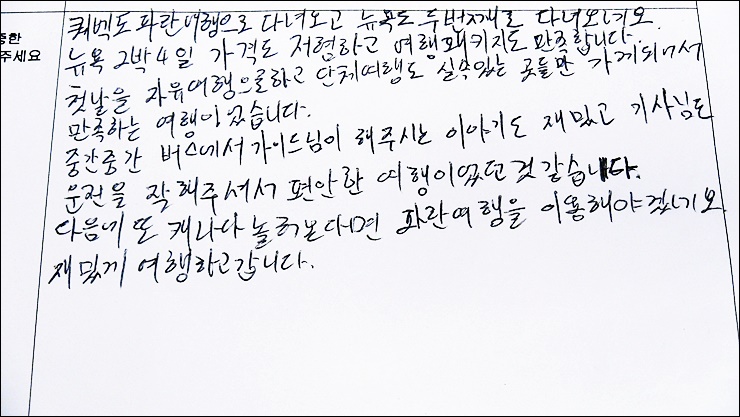 퀘벡도 파란여행으로 다녀오고 뉴욕도 두번째로 다녀오네요.
뉴욕 2박4일 가격도 저렴하고 여행패키지도 만족합니다.
첫날을 자유여행으로하고 단체여행도 실속있는 곳들만 가게되어서
만족하는 여행이였습니다.
중간중간 버스에서 가이드님이 해주시는 이야기도 재밌고 기사님도
운전을 잘해주셔서 편안한 여행이였던것 같습니다.
다음에 또 캐나다 놀러온다면 파란여행을 이용해야겠네요
재밌게 여행하고갑니다.
중한
주세요